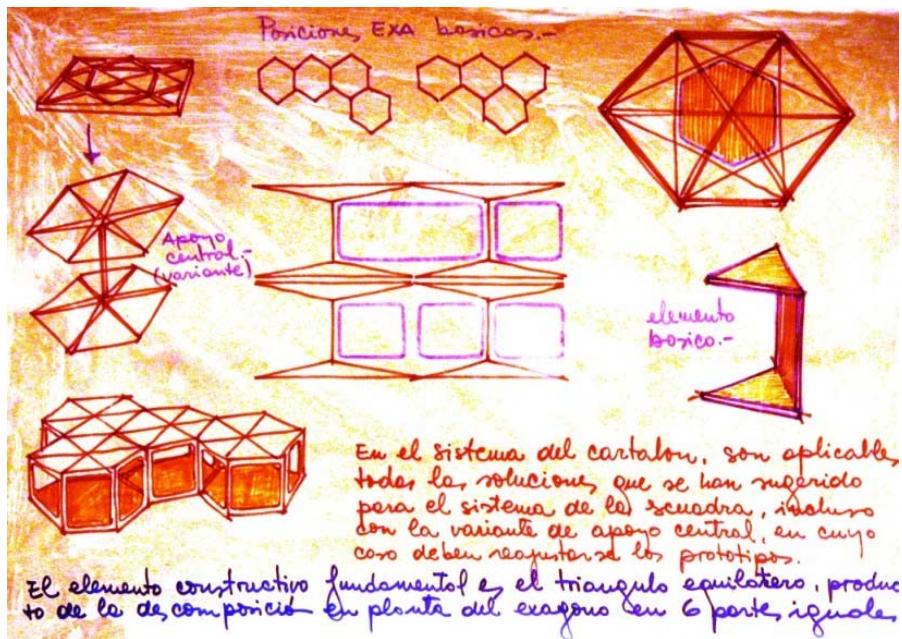 Posiciones EXA basicas.-
Apoyo
central.-
(variante)
elemento
basico.-
En el sistema del cartabon, son aplicables
todas las soluciones que se han sugerido
para el sistema de la scuadra, incluso
con la variante de apoyo central, en cuyo
caso deben reajustarse los prototipos.
El elemento constructivo fundamental es el triangulo equilatero, produc
to de la descomposición en planta del exagono en 6 partes iguales